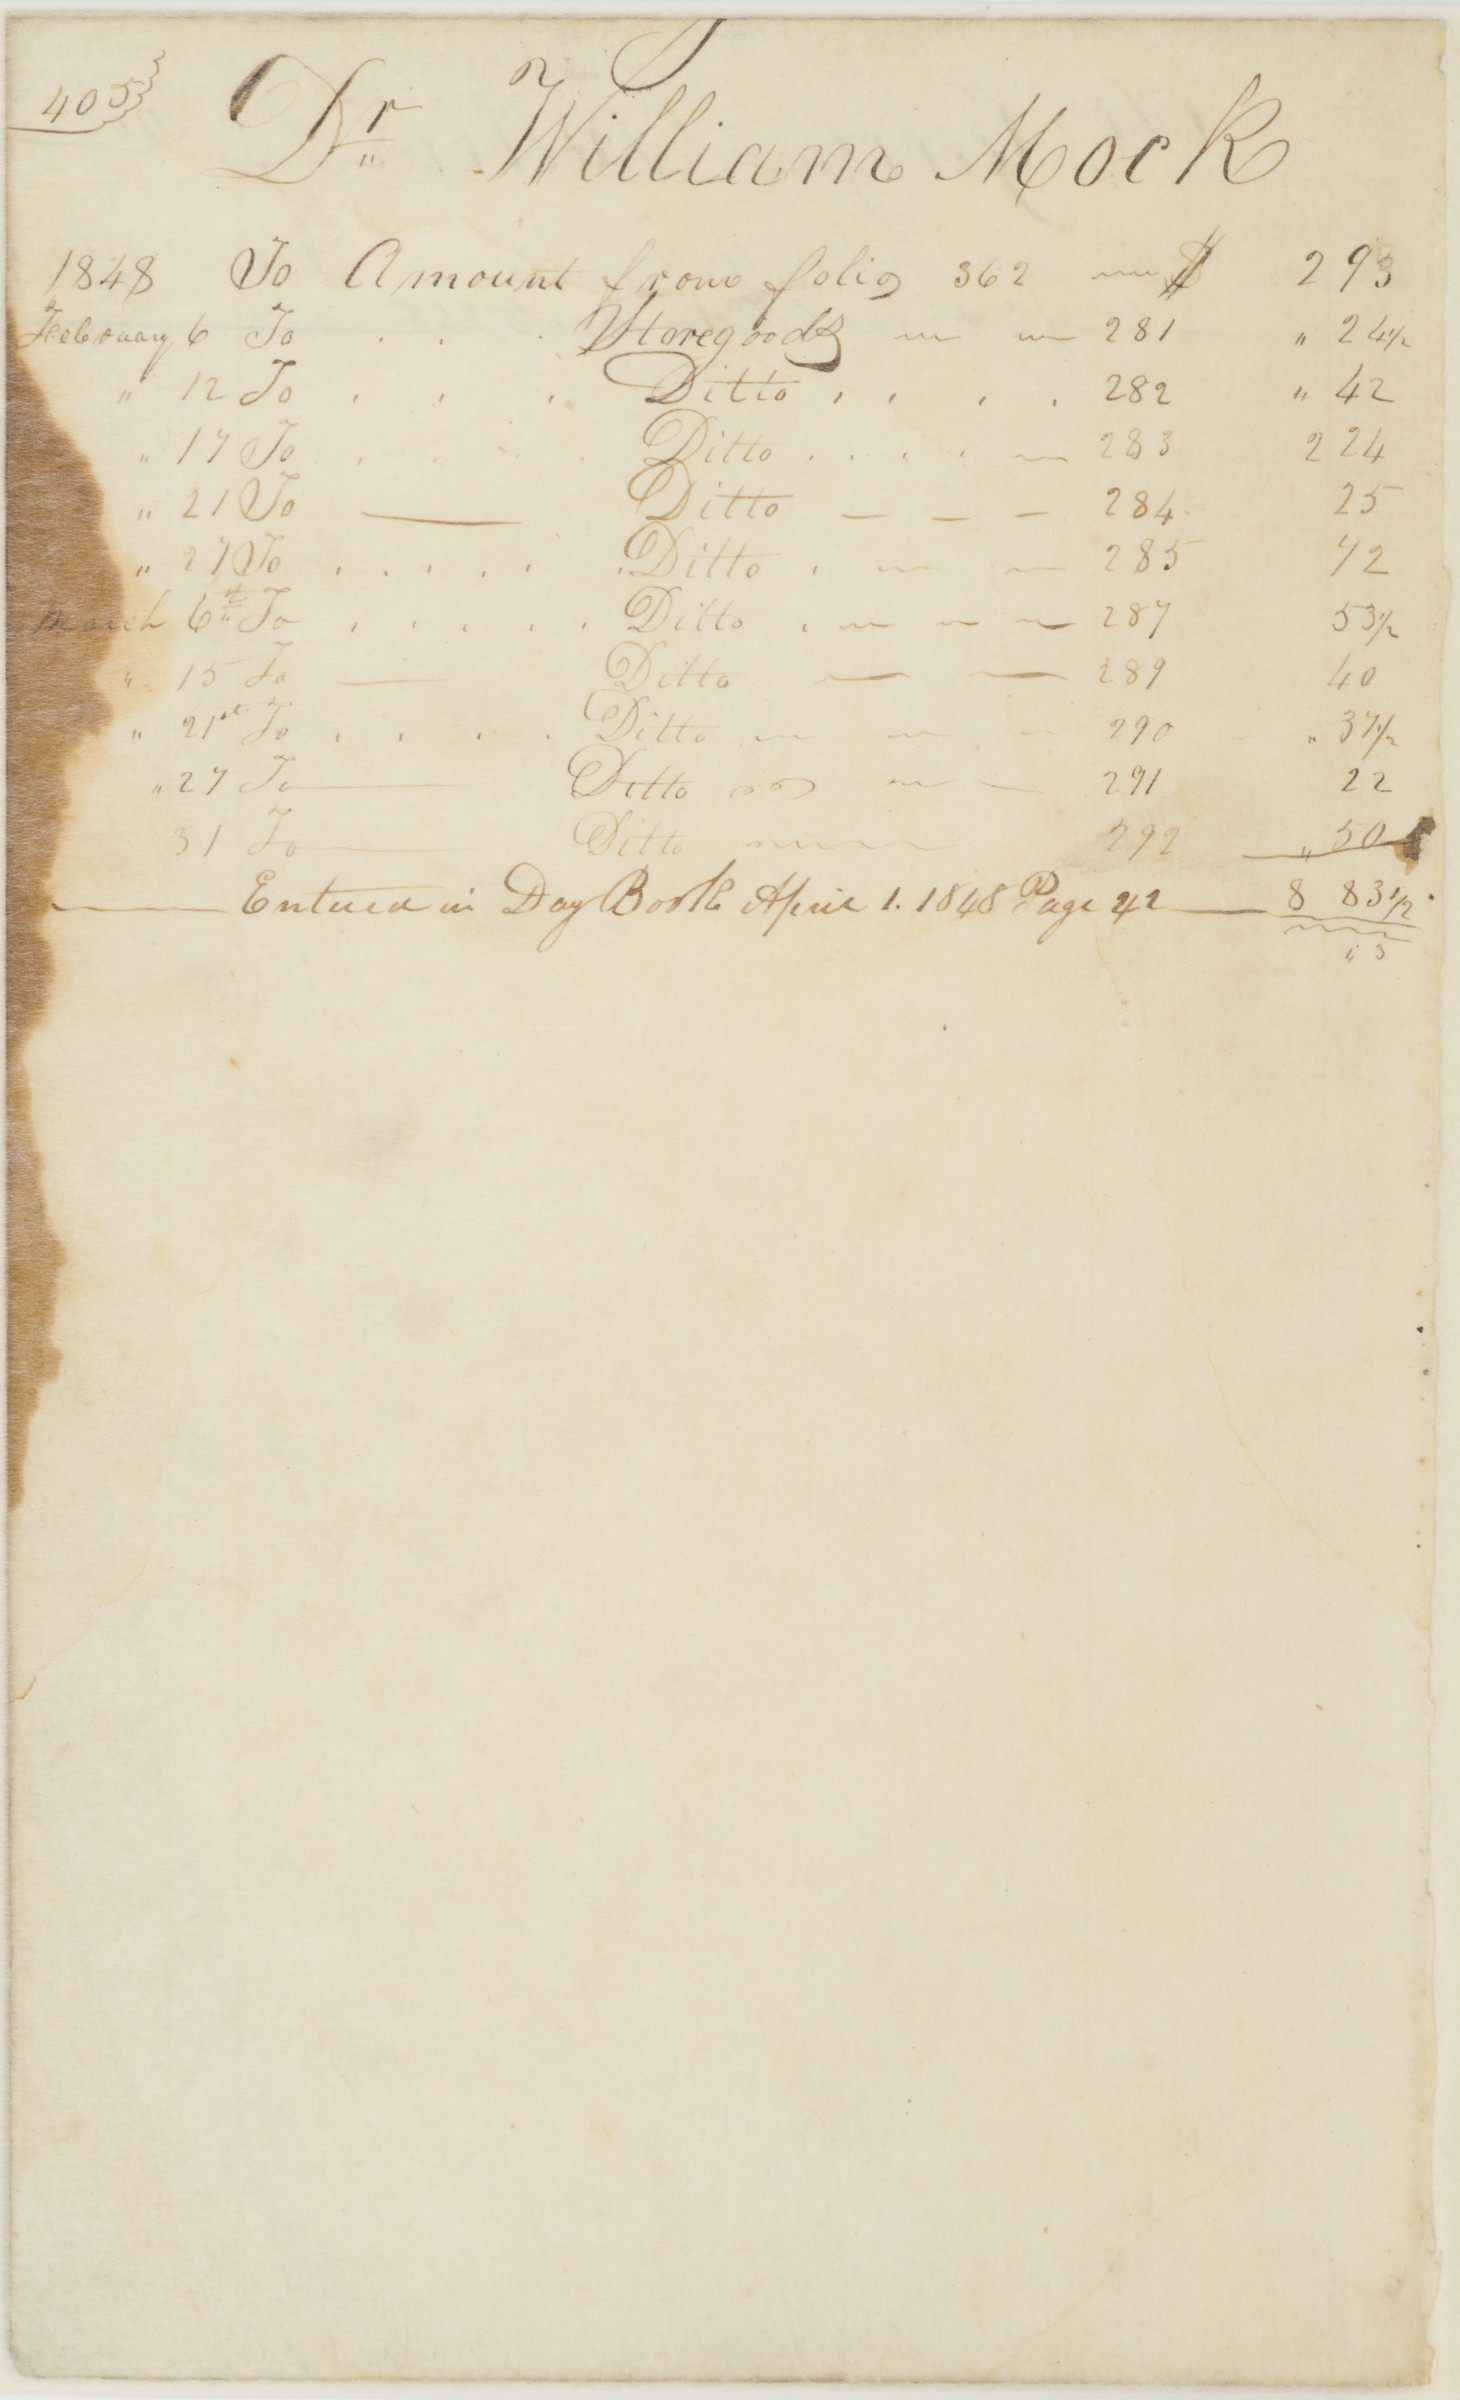 405
Dr William Mock
1848 To Amount from folio 362 $ 2 93
February 6 To . . . Storegoods 281 " 24 1/2
" 12 To . . . Ditto . . . . 282 " 42
" 17 To . . . . Ditto . . . . 283 2 24
" 21 To — Ditto — — — 284 25
" 27 To . . . . . Ditto . 285 72
March 6th To . . . . . Ditto . 287 53 1/2
" 15 To — Ditto — — 289 40
" 21st To . . . . Ditto 290 " 37 1/2
" 27 To — Ditto 291 22
31 To — Ditto 292 " 50
— Entered in Day Book April 1. 1848 Page 42 — 8 83 1/2
" 3